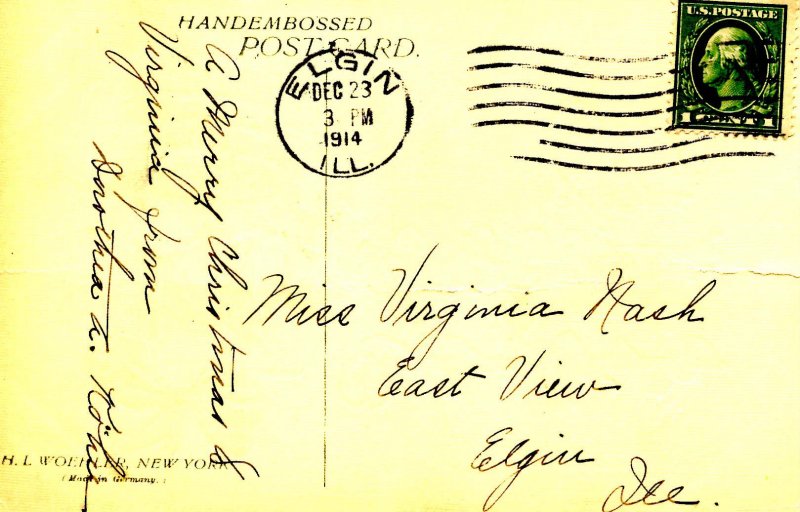 HANDEMBOSSED
POST CARD.
U.S. POSTAGE
ELGIN
DEC 23
3 PM
1914
ILL.
A Merry Christmas to
Virginia from
Dorothea A.
Miss Virginia Nash
East View
Elgin
Ill.
H. I. WOEHLER, NEW YORK
(Made in Germany.)